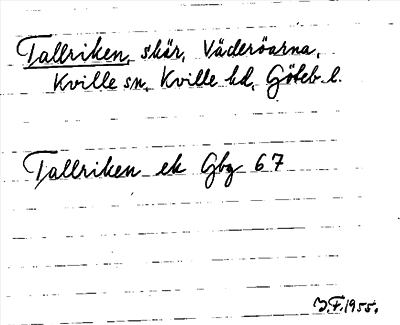 Tallriken, skär, Väderöarna,
Kville sn, Kville hd, Göteb. l.
Tallriken ek Gbg 67
J.F. 1955.